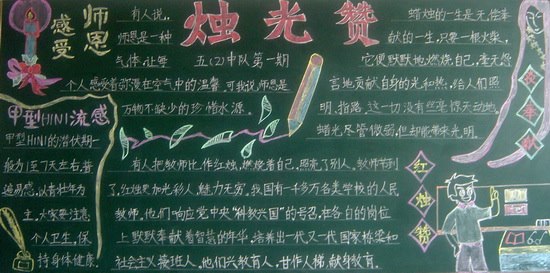 感受
师恩
烛光赞
五(2)中队第一期
有人说,
师恩是一种
气体,让每
个人感受着弥漫在空气中的温馨。可我说,师恩是
万物不缺少的珍惜水源。
蜡烛的一生是无偿奉
献的一生,只要一根火柴,
它便默默地燃烧自己,毫无怨
言地贡献自身的光和热,给人们照
明、指路,这一切没有丝毫惊天动地。
蜡光尽管微弱,但却能带来光明。
甲型H1N1流感
甲型H1N1的潜伏期一
般为1至7天左右,普
遍易感,以青壮年为
主。大家要注意
个人卫生,保
持身体健康。
有人把教师比作红烛,燃烧着自己,照亮了别人。教师节到
了,红烛更加光彩人,魅力无穷。我国有一千多万各类学校的人民
教师,他们响应党中央“科教兴国”的号召,在各自的岗位
上默默奉献着智慧的年华,培养出一代又一代国家桥梁和
社会主义接班人。他们兴教育人,甘作人梯,献身教育。
红烛赞